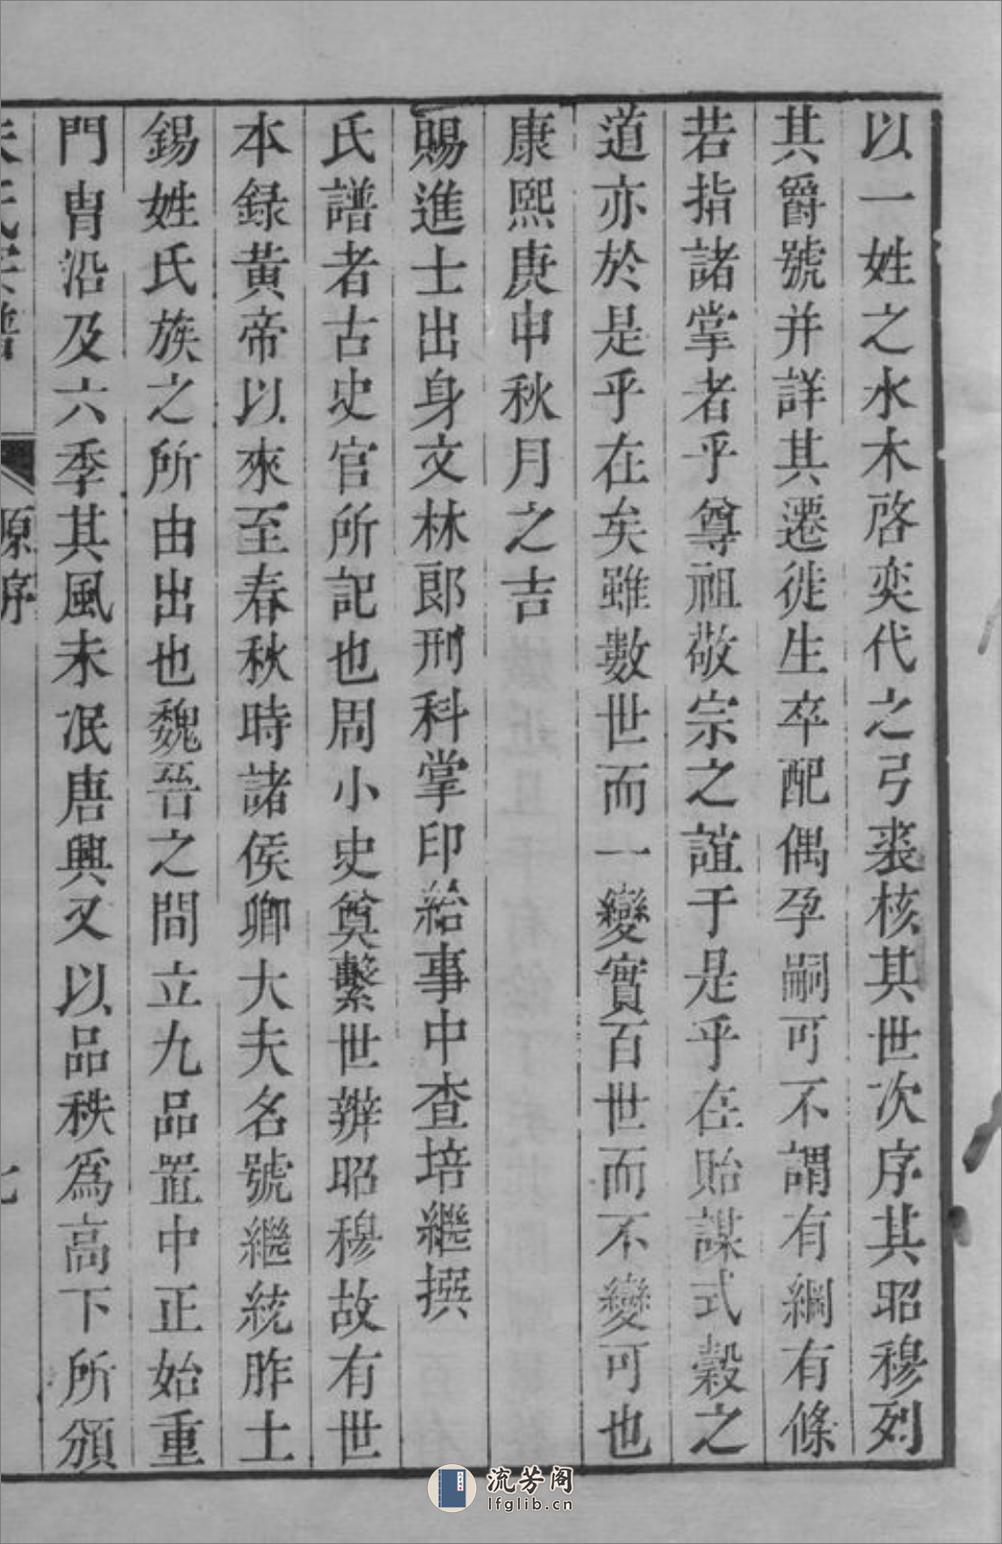 以一姓之水木啓奕代之弓裘核其世次序其昭穆列
其爵號并詳其遷徙生卒配偶孕嗣可不謂有綱有條
若指諸掌者乎尊祖敬宗之誼于是乎在貽謀式穀之
道亦於是乎在矣雖數世而一變實百世而不變可也
康熙庚申秋月之吉
賜進士出身文林郎刑科掌印給事中查培繼撰
氏譜者古史官所記也周小史奠繫世辨昭穆故有世
本錄黃帝以來至春秋時諸侯卿大夫名號繼統胙土
錫姓氏族之所由出也魏晉之間立九品置中正始重
門胄沿及六季其風未泯唐興又以品秩爲高下所頒
氏宗譜
原序
七
流芳阁
lfglib.cn